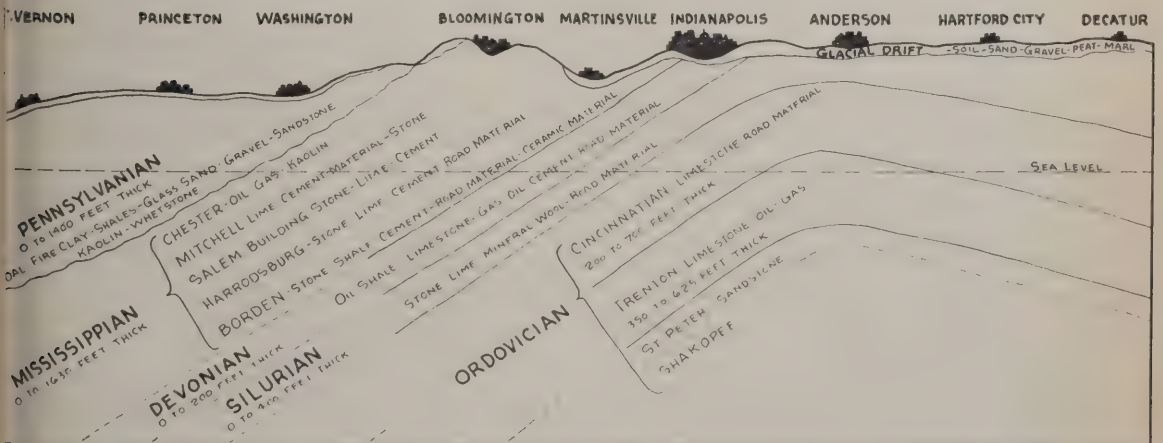 T. VERNON PRINCETON WASHINGTON BLOOMINGTON MARTINSVILLE INDIANAPOLIS ANDERSON HARTFORD CITY DECATUR
GLACIAL DRIFT -SOIL-SAND-GRAVEL-PEAT-MARL
SEA LEVEL
PENNSYLVANIAN
0 TO 1400 FEET THICK
OAL FIRE CLAY-SHALES-GLASS SAND-GRAVEL-SANDSTONE
KAOLIN-WHETSTONE
MISSISSIPPIAN
0 TO 1635 FEET THICK
CHESTER-OIL GAS KAOLIN
MITCHELL LIME CEMENT-MATERIAL-STONE
SALEM BUILDING STONE-LIME-CEMENT
HARRODSBURG-STONE LIME CEMENT ROAD MATERIAL
BORDEN-STONE SHALE CEMENT-ROAD MATERIAL-CERAMIC MATERIAL
DEVONIAN
0 TO 200 FEET THICK
OIL SHALE LIMESTONE-GAS OIL CEMENT ROAD MATERIAL
SILURIAN
0 TO FEET THICK
STONE LIME MINERAL WOOL-ROAD MATERIAL
ORDOVICIAN
CINCINNATIAN LIMESTONE ROAD MATERIAL
200 TO 700 FEET THICK
TRENTON LIMESTONE OIL-GAS
350 TO 625 FEET THICK
ST PETER SANDSTONE
SHAKOPEE